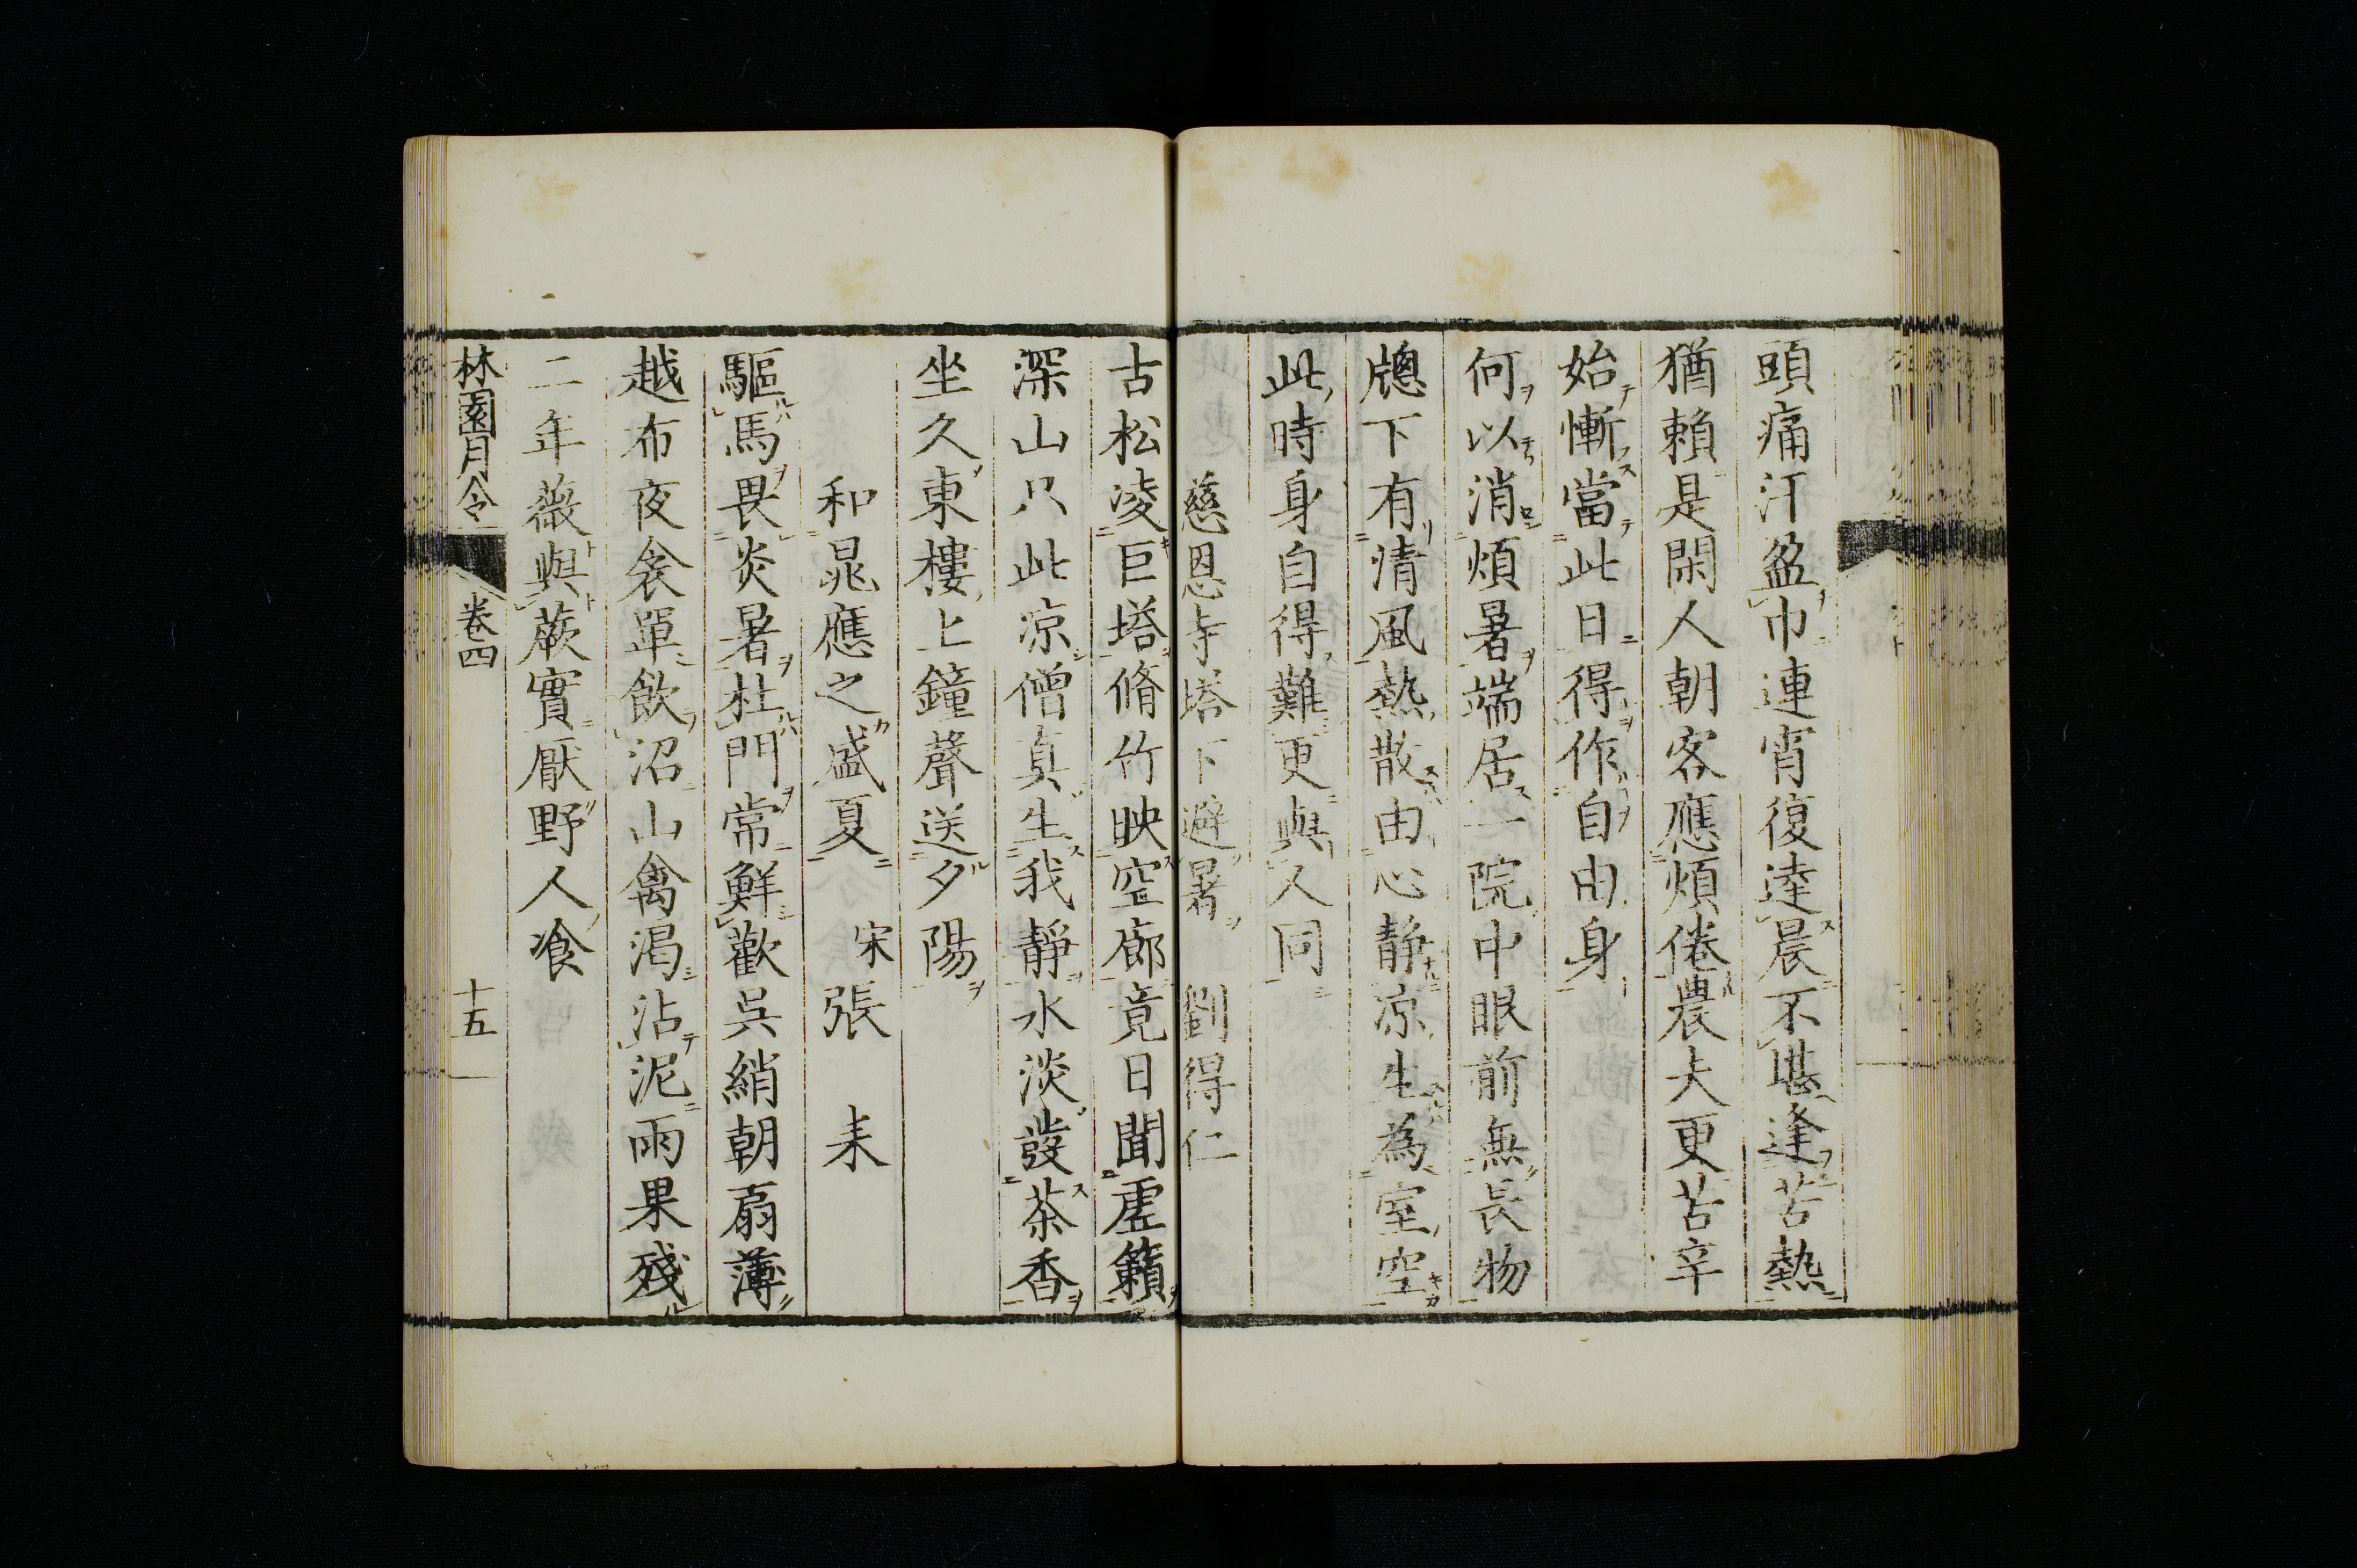 頭痛汗盈巾連宵復達晨不堪逢苦熱
猶賴是閑人朝客應煩倦農夫更苦辛
始慚當此日得作自由身
何以消煩暑端居一院中眼前無長物
牕下有清風熱散由心静凉生為室空
此時身自得難更與人同
慈恩寺塔下避暑　劉得仁
古松凌巨塔脩竹映空廊竟日聞虛籟
深山只此凉僧真生我靜水淡發茶香
坐久東樓上鐘聲送夕陽
和晁應之盛夏　宋張　耒
驅馬畏炎暑杜門常鮮歡吳綃朝扇薄
越布夜衾單飲沼山禽渴沾泥雨果殘
二年薇與蕨實厭野人飡
林園月令　卷四　十五